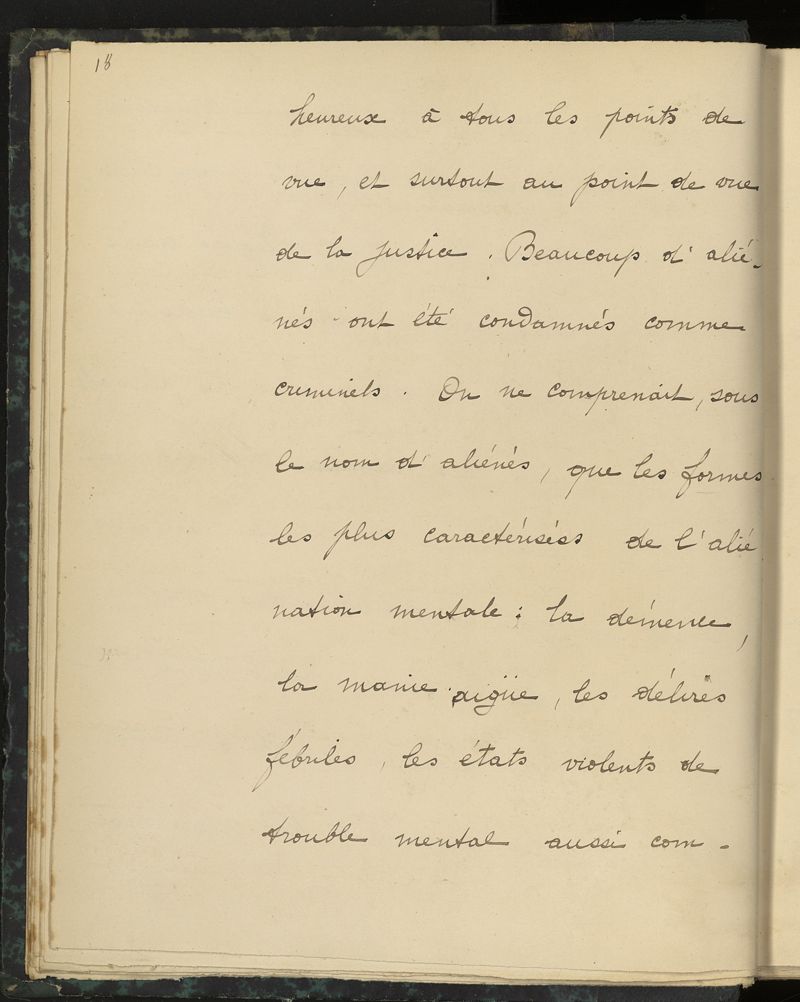 18
heureux à tous les points de
vue, et surtout au point de vue
de la justice. Beaucoup d'alié-
nés ont été condamnés comme
criminels. On ne comprenait, sous
le nom d'aliénés, que les formes
les plus caractérisées de l'alié
nation mentale : la démence,
la manie aigüe, les délires
fébriles, les états violents de
trouble mental aussi com-